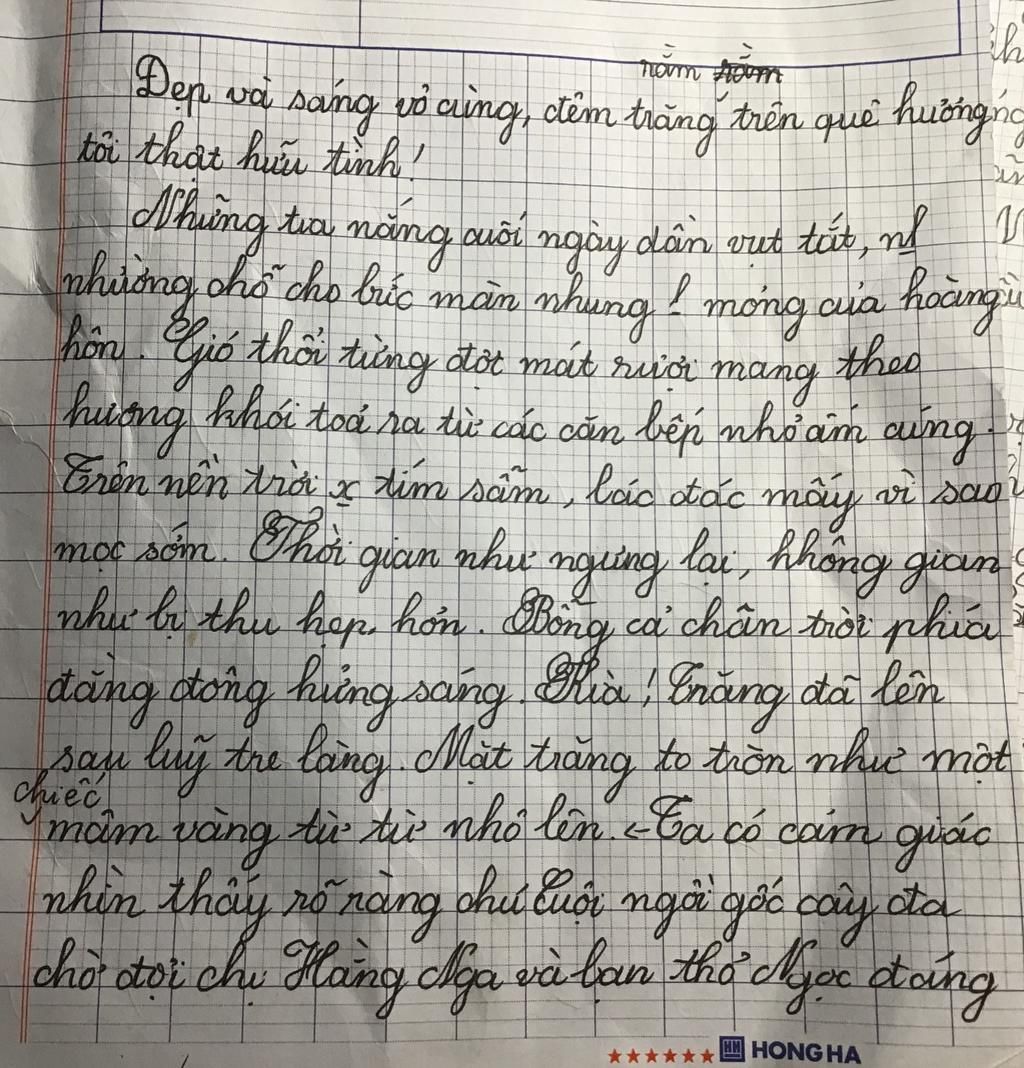 nằm nằm
Đẹp và sáng vô cùng, đêm trăng trên quê hương
tôi thật hữu tình!
Những tia nắng cuối ngày dần vụt tắt, nh
nhường chỗ cho bức màn nhung ! mỏng của hoàng
hôn. Gió thổi từng đợt mát rượi mang theo
hương khói toả ra từ các căn bếp nhỏ ấm cúng.
Trên nền trời x tím sẫm, lác đác mấy vì sao
mọc sớm. Thời gian như ngưng lại, không gian
như bị thu hẹp hơn. Bỗng cả chân trời phía
đằng đông hửng sáng. Kìa! Trăng đã lên
sau luỹ tre làng. Mặt trăng to tròn như một
chiếc
mâm vàng từ từ nhô lên. Ta có cảm giác
nhìn thấy rõ ràng chú Cuội ngồi gốc cây đa
chờ đợi chị Hằng Nga và bạn thỏ Ngọc đáng
HONG HA